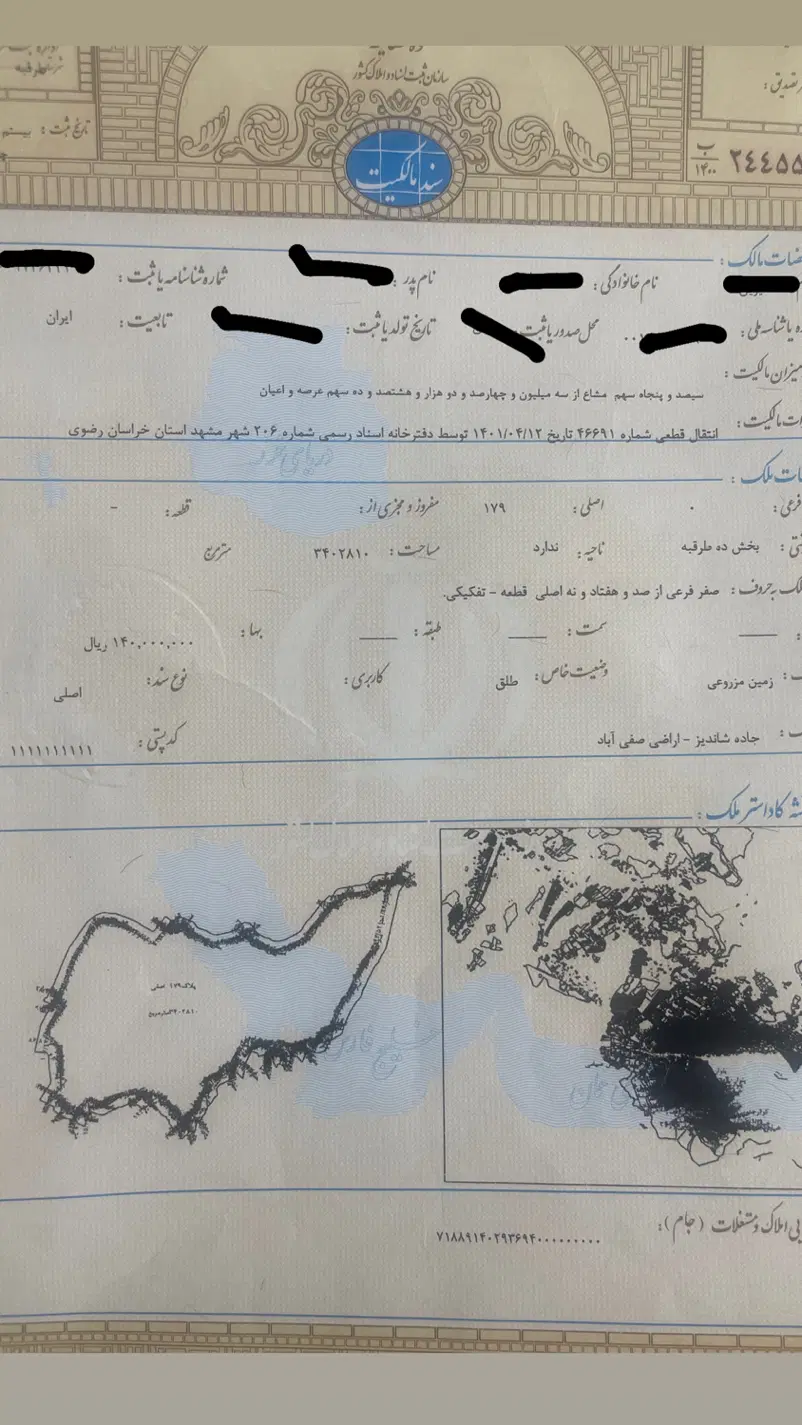 سازمان ثبت اسناد و املاک کشور
تاریخ ثبت :
سند مالکیت
ب
۱۴۰۰
۲۴۴۵۵
مالک :
نام خانوادگی :
نام پدر :
شماره شناسنامه یا ثبت :
یا شناسه ملی :
محل صدور یا ثبت :
تاریخ تولد یا ثبت :
تابعیت :
ایران
میزان مالکیت :
سیصد و پنجاه سهم مشاع از سه میلیون و چهارصد و دو هزار و هشتصد و ده سهم عرصه و اعیان
مالکیت :
انتقال قطعی شماره ۴۶۶۹۱ تاریخ ۱۴۰۱/۰۴/۱۲ توسط دفترخانه اسناد رسمی شماره ۲۰۶ شهر مشهد استان خراسان رضوی
ملک :
فرعی :
۰
اصلی :
۱۷۹
مفروز و مجزی از :
قطعه :
-
بخش ده طرقبه
ناحیه :
ندارد
مساحت :
۳۴۰۲۸۱۰
مترمربع
ملک به حروف :
صفر فرعی از صد و هفتاد و نه اصلی قطعه - تفکیکی.
سمت :
طبقه :
بها :
۱۴۰,۰۰۰,۰۰۰ ریال
زمین مزروعی
وضعیت خاص :
طلق
کاربری :
نوع سند :
اصلی
جاده شاندیز - اراضی صفی آباد
کد پستی :
۱۱۱۱۱۱۱۱۱۱
کاداستر ملک :
پلاک ۱۷۹ اصلی
دریای خزر
خلیج فارس
املاک و مستغلات (جام) :
۷۱۸۸۹۱۴۰۲۹۳۶۹۴۰۰۰۰۰۰۰۰۰